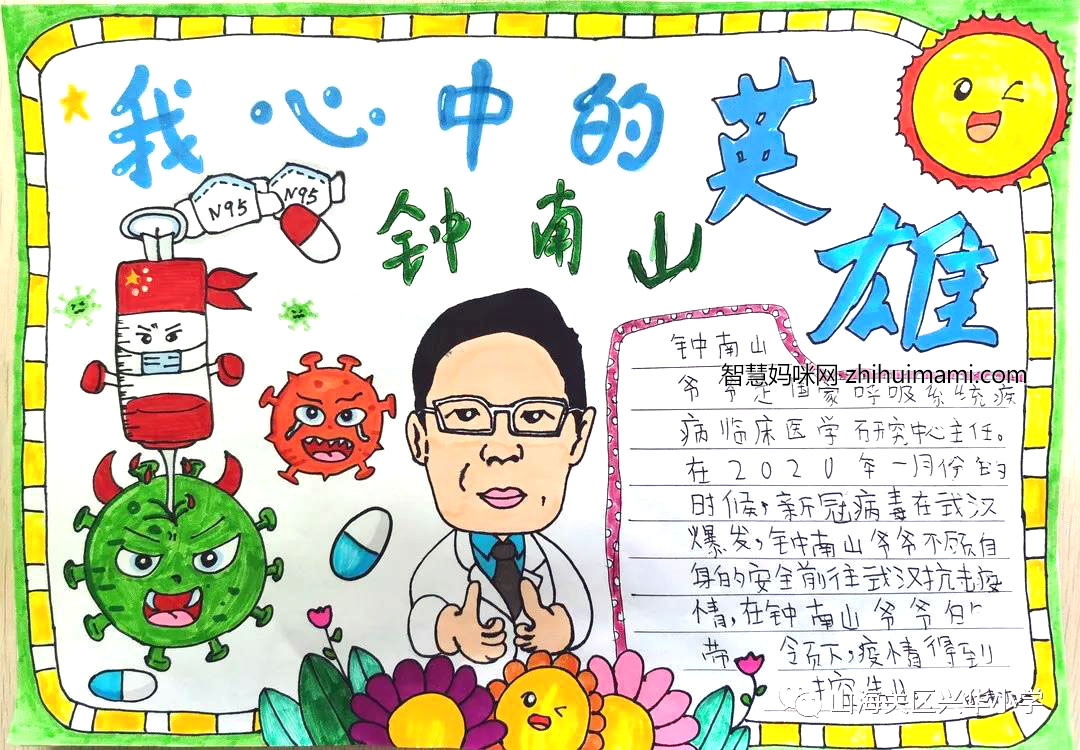 我心中的英雄
N95
N95
钟南山
钟南山
智慧妈咪网 zhihuimami.com
爷爷是国家呼吸系统疾
病临床医学研究中心主任。
在2020年一月份的
时候，新冠病毒在武汉
爆发，钟南山爷爷不顾自
身的安全前往武汉抗击疫
情，在钟南山爷爷的
带领下，疫情得到
山海关区兴华小学